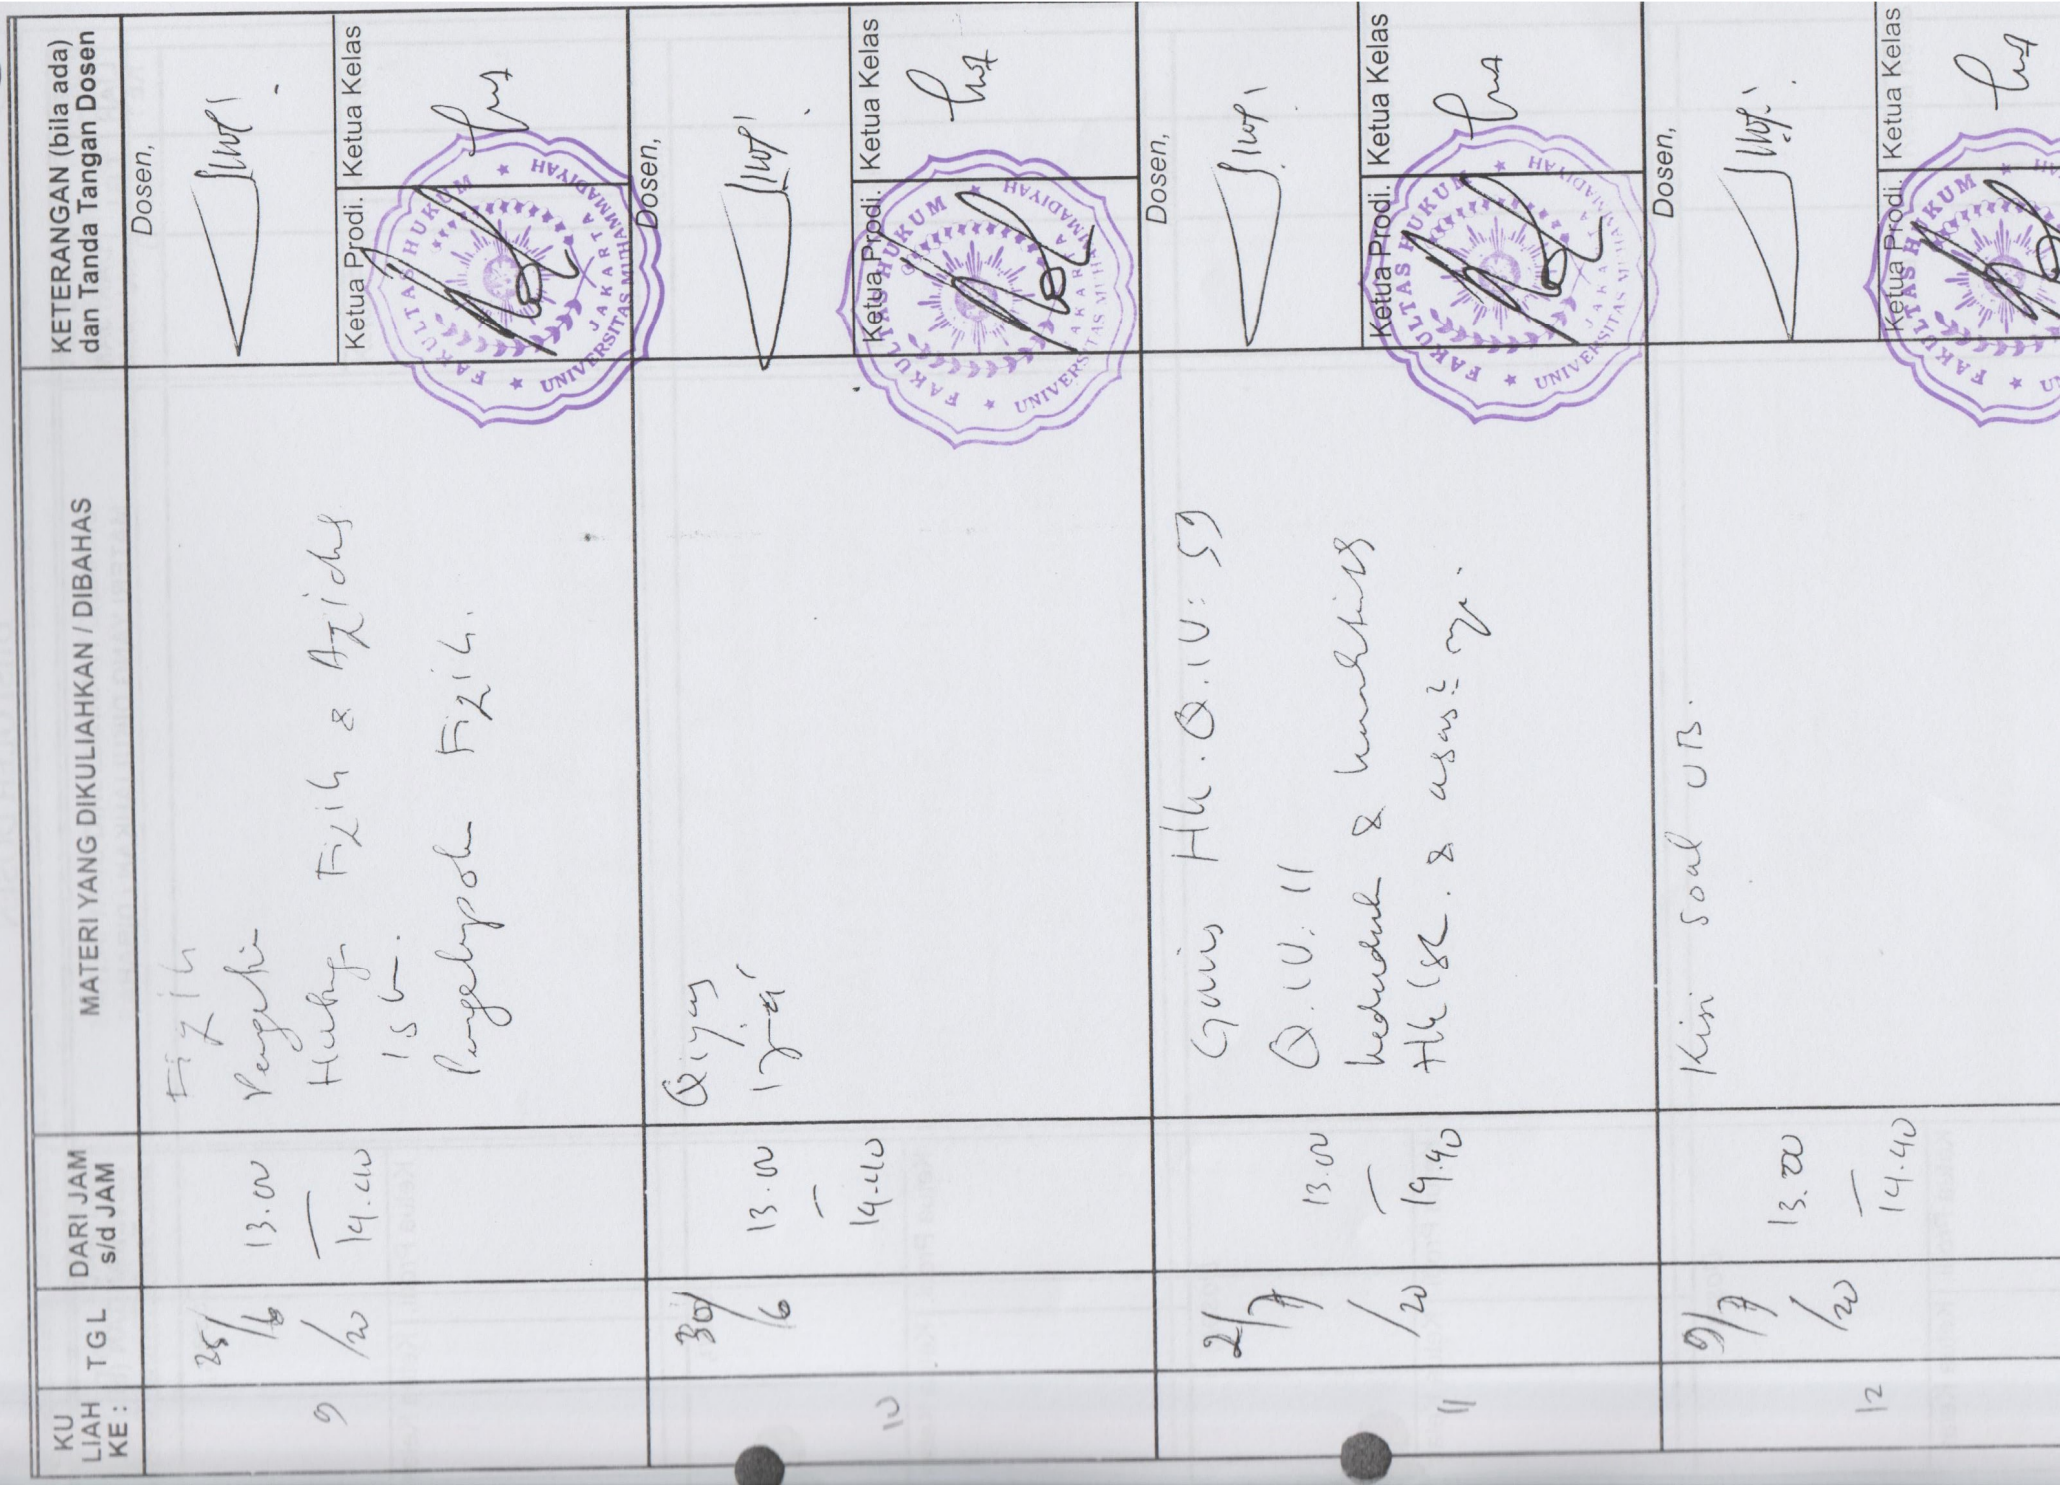 KU LIAH KE :
T G L
DARI JAM s/d JAM
MATERI YANG DIKULIAHKAN / DIBAHAS
KETERANGAN (bila ada) dan Tanda Tangan Dosen
9
25/6/20
13.00
—
14.40
Fiqih
Hubung Fiqih &
Fiqih.
Dosen,
Ketua Prodi.
Ketua Kelas
FAKULTAS HUKUM
UNIVERSITAS MUHAMMADIYAH
JAKARTA
10
30/6
13.00
—
14.40
Qiyas
Dosen,
Ketua Prodi.
Ketua Kelas
FAKULTAS HUKUM
UNIVERSITAS MUHAMMADIYAH
JAKARTA
11
2/7/20
13.00
—
14.40
Garis Hk. Q.IV: 59
Q.IV: 11
&
& asas2 nya.
Dosen,
Ketua Prodi.
Ketua Kelas
FAKULTAS HUKUM
UNIVERSITAS MUHAMMADIYAH
JAKARTA
12
9/7/20
13.00
—
14.40
Kisi soal UB.
Dosen,
Ketua Prodi.
Ketua Kelas
FAKULTAS HUKUM